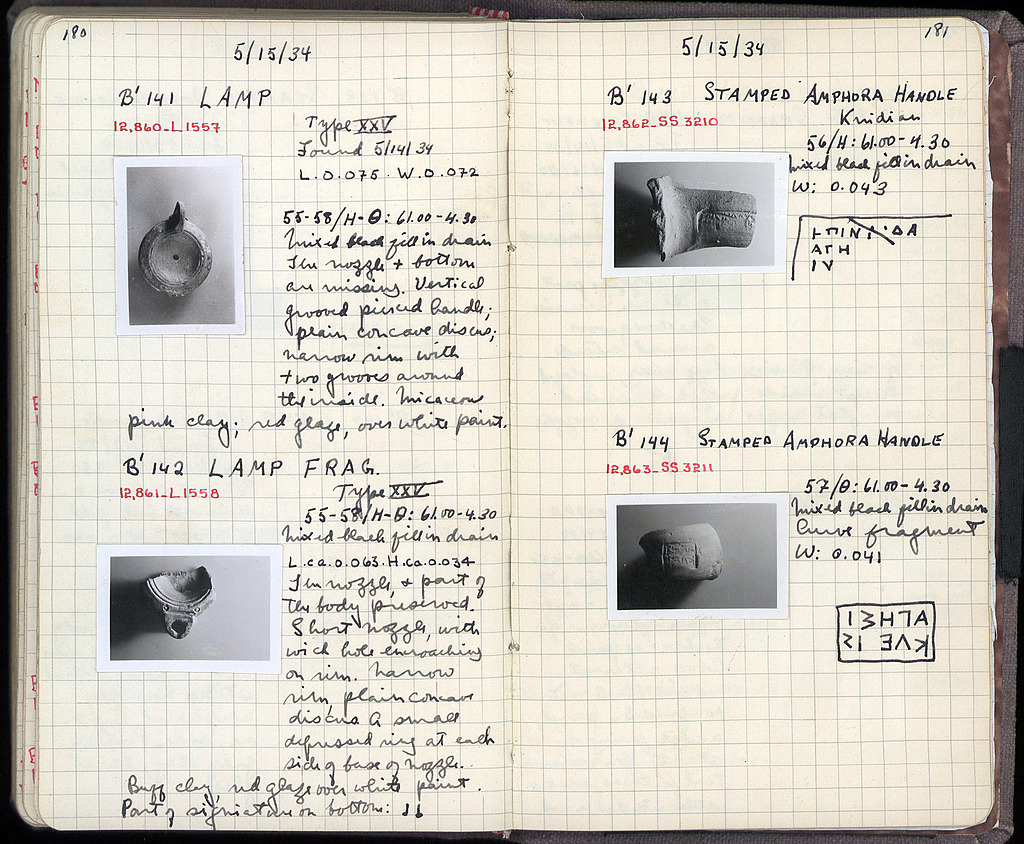 180
5/15/34
B' 141 LAMP
12,860_L1557
Type XXV
Found 5/14/34
L.0.075. W.0.072
55-58/H-Θ: 61.00-4.30
Mixed black fill in drain
The nozzle + bottom
are missing. Vertical
grooved pierced handle;
plain concave discus;
narrow rim with
two grooves around
the inside. Micaceous
pink clay; red glaze, over white paint.
B' 142 LAMP FRAG.
12,861_L1558
Type XXV
55-58/H-Θ: 61.00-4.30
Mixed black fill in drain
L.ca.0.063.H.ca.0.034
The nozzle, & part of
the body preserved.
Short nozzle, with
wick hole encroaching
on rim. Narrow
rim, plain concave
discus. A small
depressed ring at each
side of base of nozzle.
Buff clay, red glaze over white paint.
Part of signiature on bottom:
181
5/15/34
B' 143 STAMPED AMPHORA HANDLE
12,862_SS 3210
Knidian
56/H: 61.00-4.30
Mixed black fill in drain
W: 0.043
ΑΓΗ
ΙV
B' 144 STAMPED AMPHORA HANDLE
12,863_SS 3211
57/Θ: 61.00-4.30
Mixed black fill in drain
Curve fragment
W: 0.041